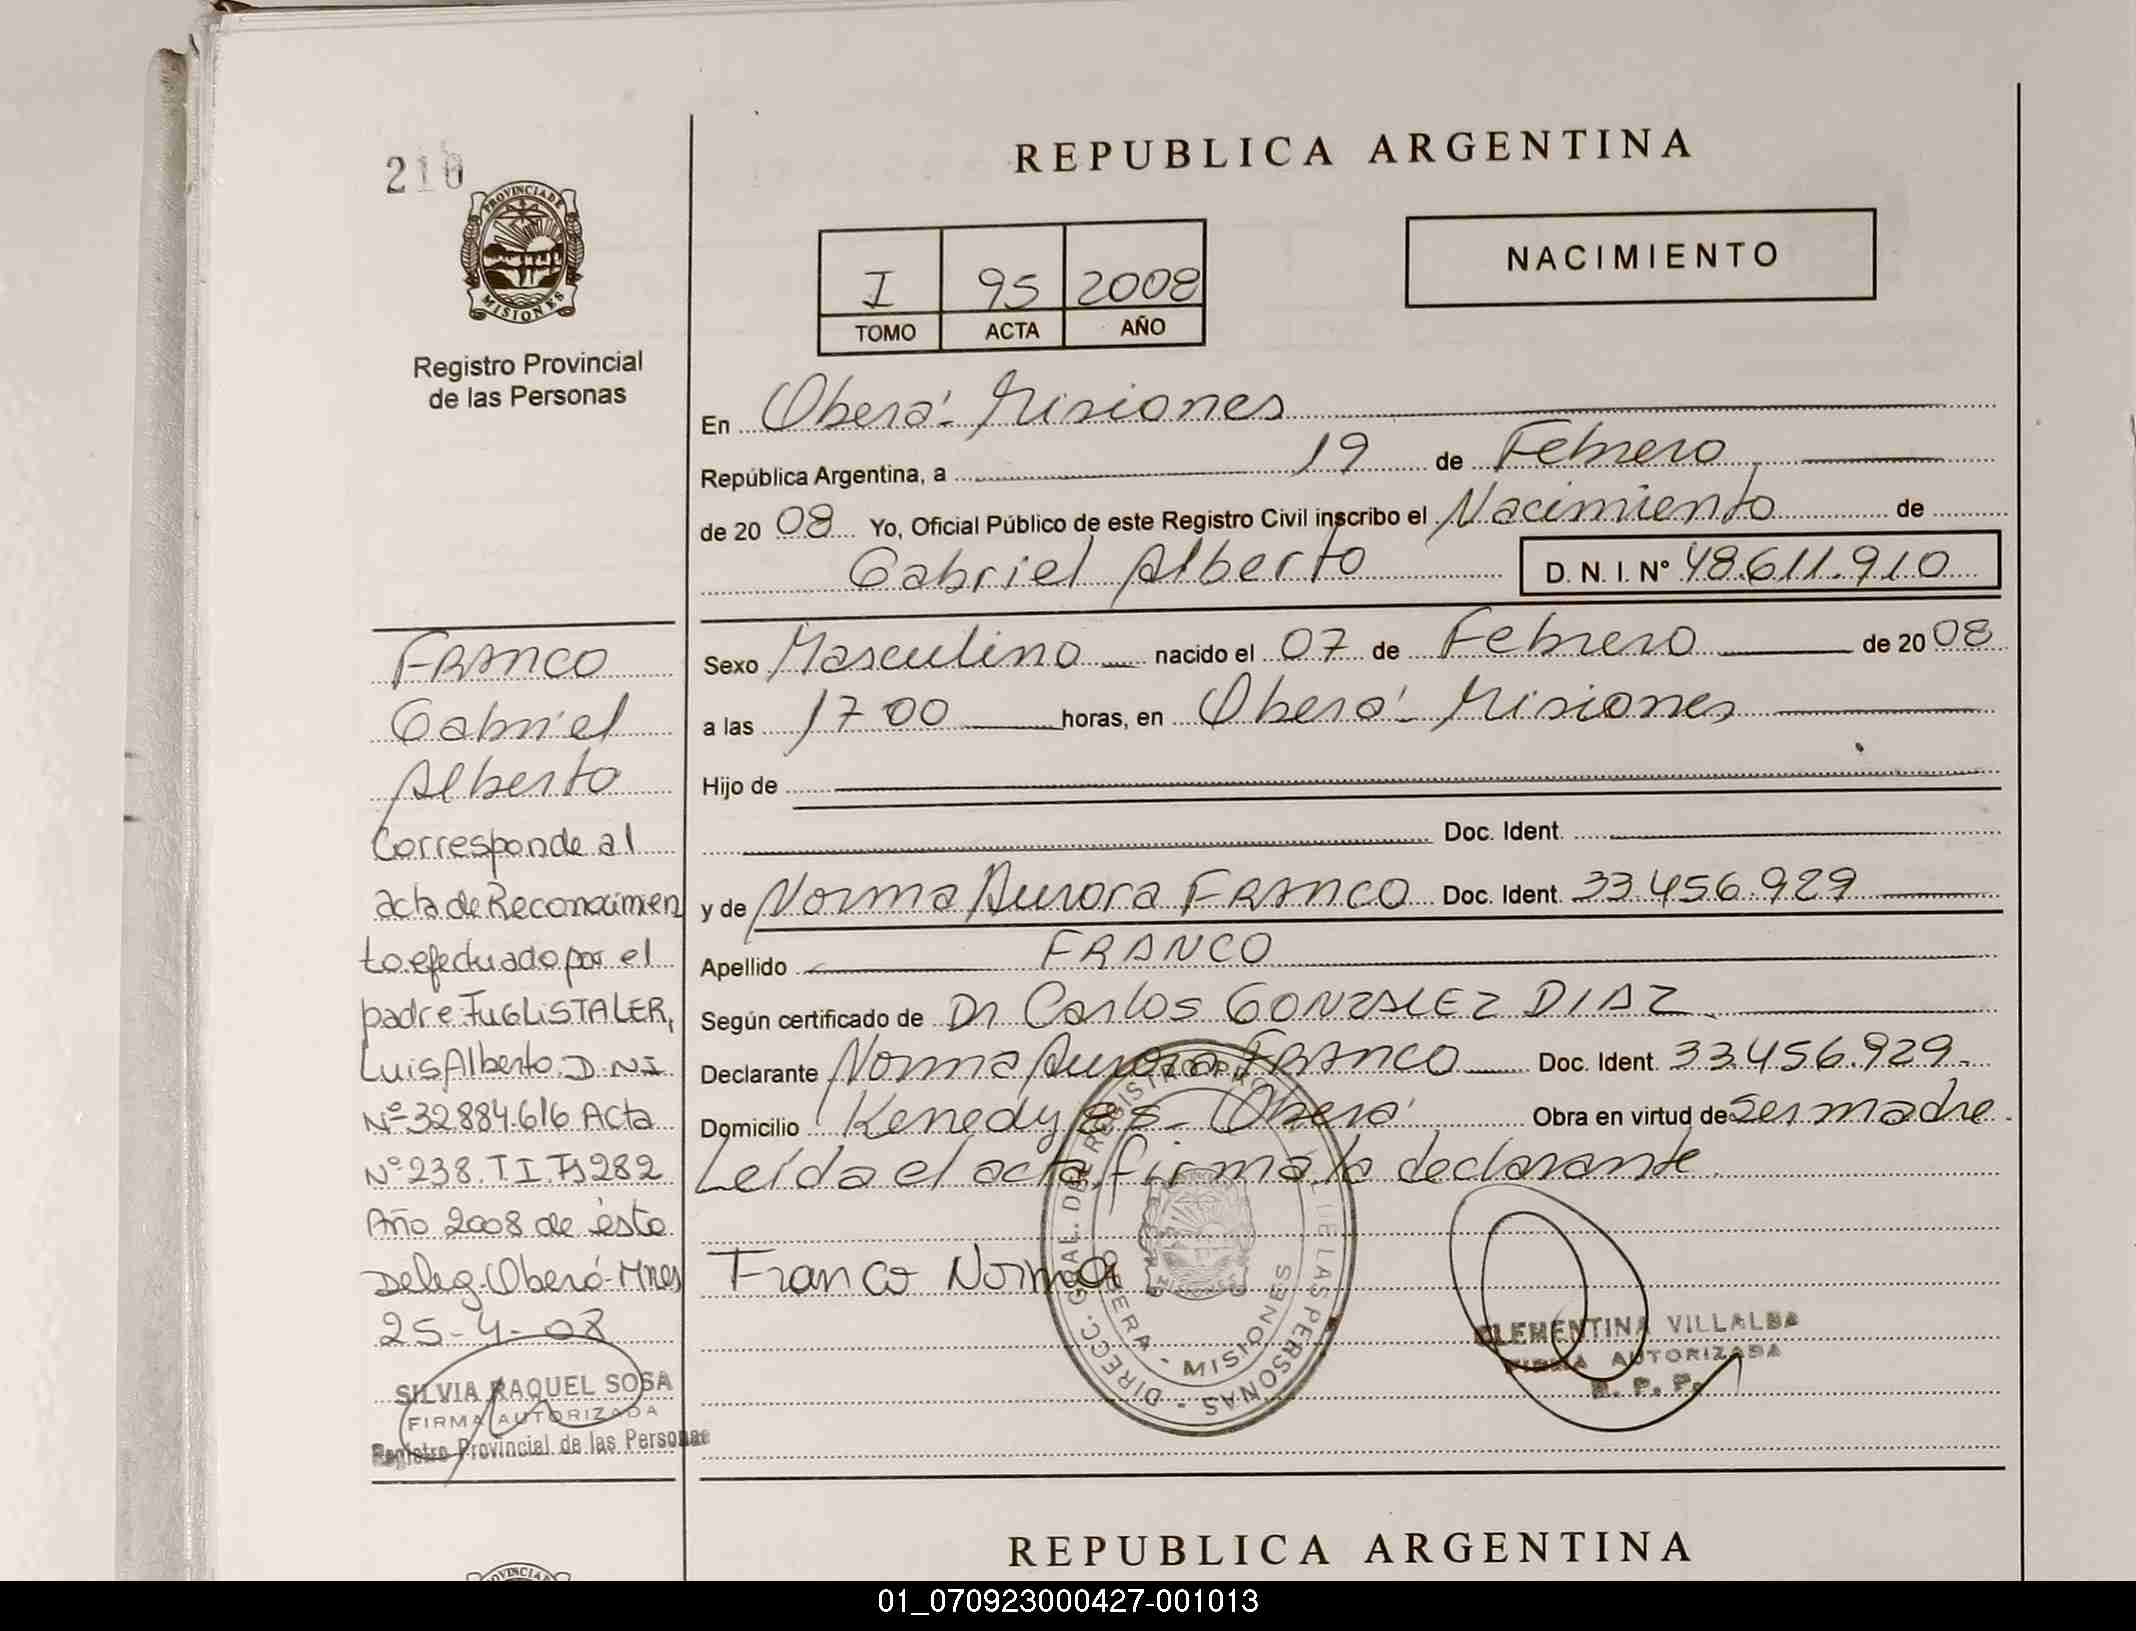 210
PROVINCIA DE
MISIONES
Registro Provincial
de las Personas
FRANCO
Gabriel
Alberto
Corresponde al
acta de Reconocimien
to efectuado por el
padre FUGLISTALER,
Luis Alberto. D.N.I.
Nº 32.884.616 Acta
Nº 238. T. I. Fs 282
Año 2008 de ésta
Deleg. Oberá - Mnes
25-4-08
SILVIA RAQUEL SOSA
FIRMA AUTORIZADA
Registro Provincial de las Personas
REPUBLICA ARGENTINA
NACIMIENTO
I 95 2008
TOMO ACTA AÑO
En Oberá - Misiones
República Argentina, a 19 de Febrero
de 20 08 Yo, Oficial Público de este Registro Civil inscribo el Nacimiento de
Gabriel Alberto D. N. I. Nº 48.611.910
Sexo Masculino nacido el 07 de Febrero de 20 08
a las 17 00 horas, en Oberá - Misiones
Hijo de
Doc. Ident.
y de Norma Aurora FRANCO Doc. Ident. 33.456.929
Apellido FRANCO
Según certificado de Dr Carlos GONZALEZ DIAZ
Declarante Norma Aurora FRANCO Doc. Ident. 33.456.929.
Domicilio Kenedy - Oberá Obra en virtud de ser madre.
Leída el acta, firma la declarante.
Franco Norma
DIRECC. GRAL. DEL REGISTRO PROV. DE LAS PERSONAS
OBERA - MISIONES
CLEMENTINA VILLALBA
FIRMA AUTORIZADA
R. P. P.
REPUBLICA ARGENTINA
01_070923000427-001013